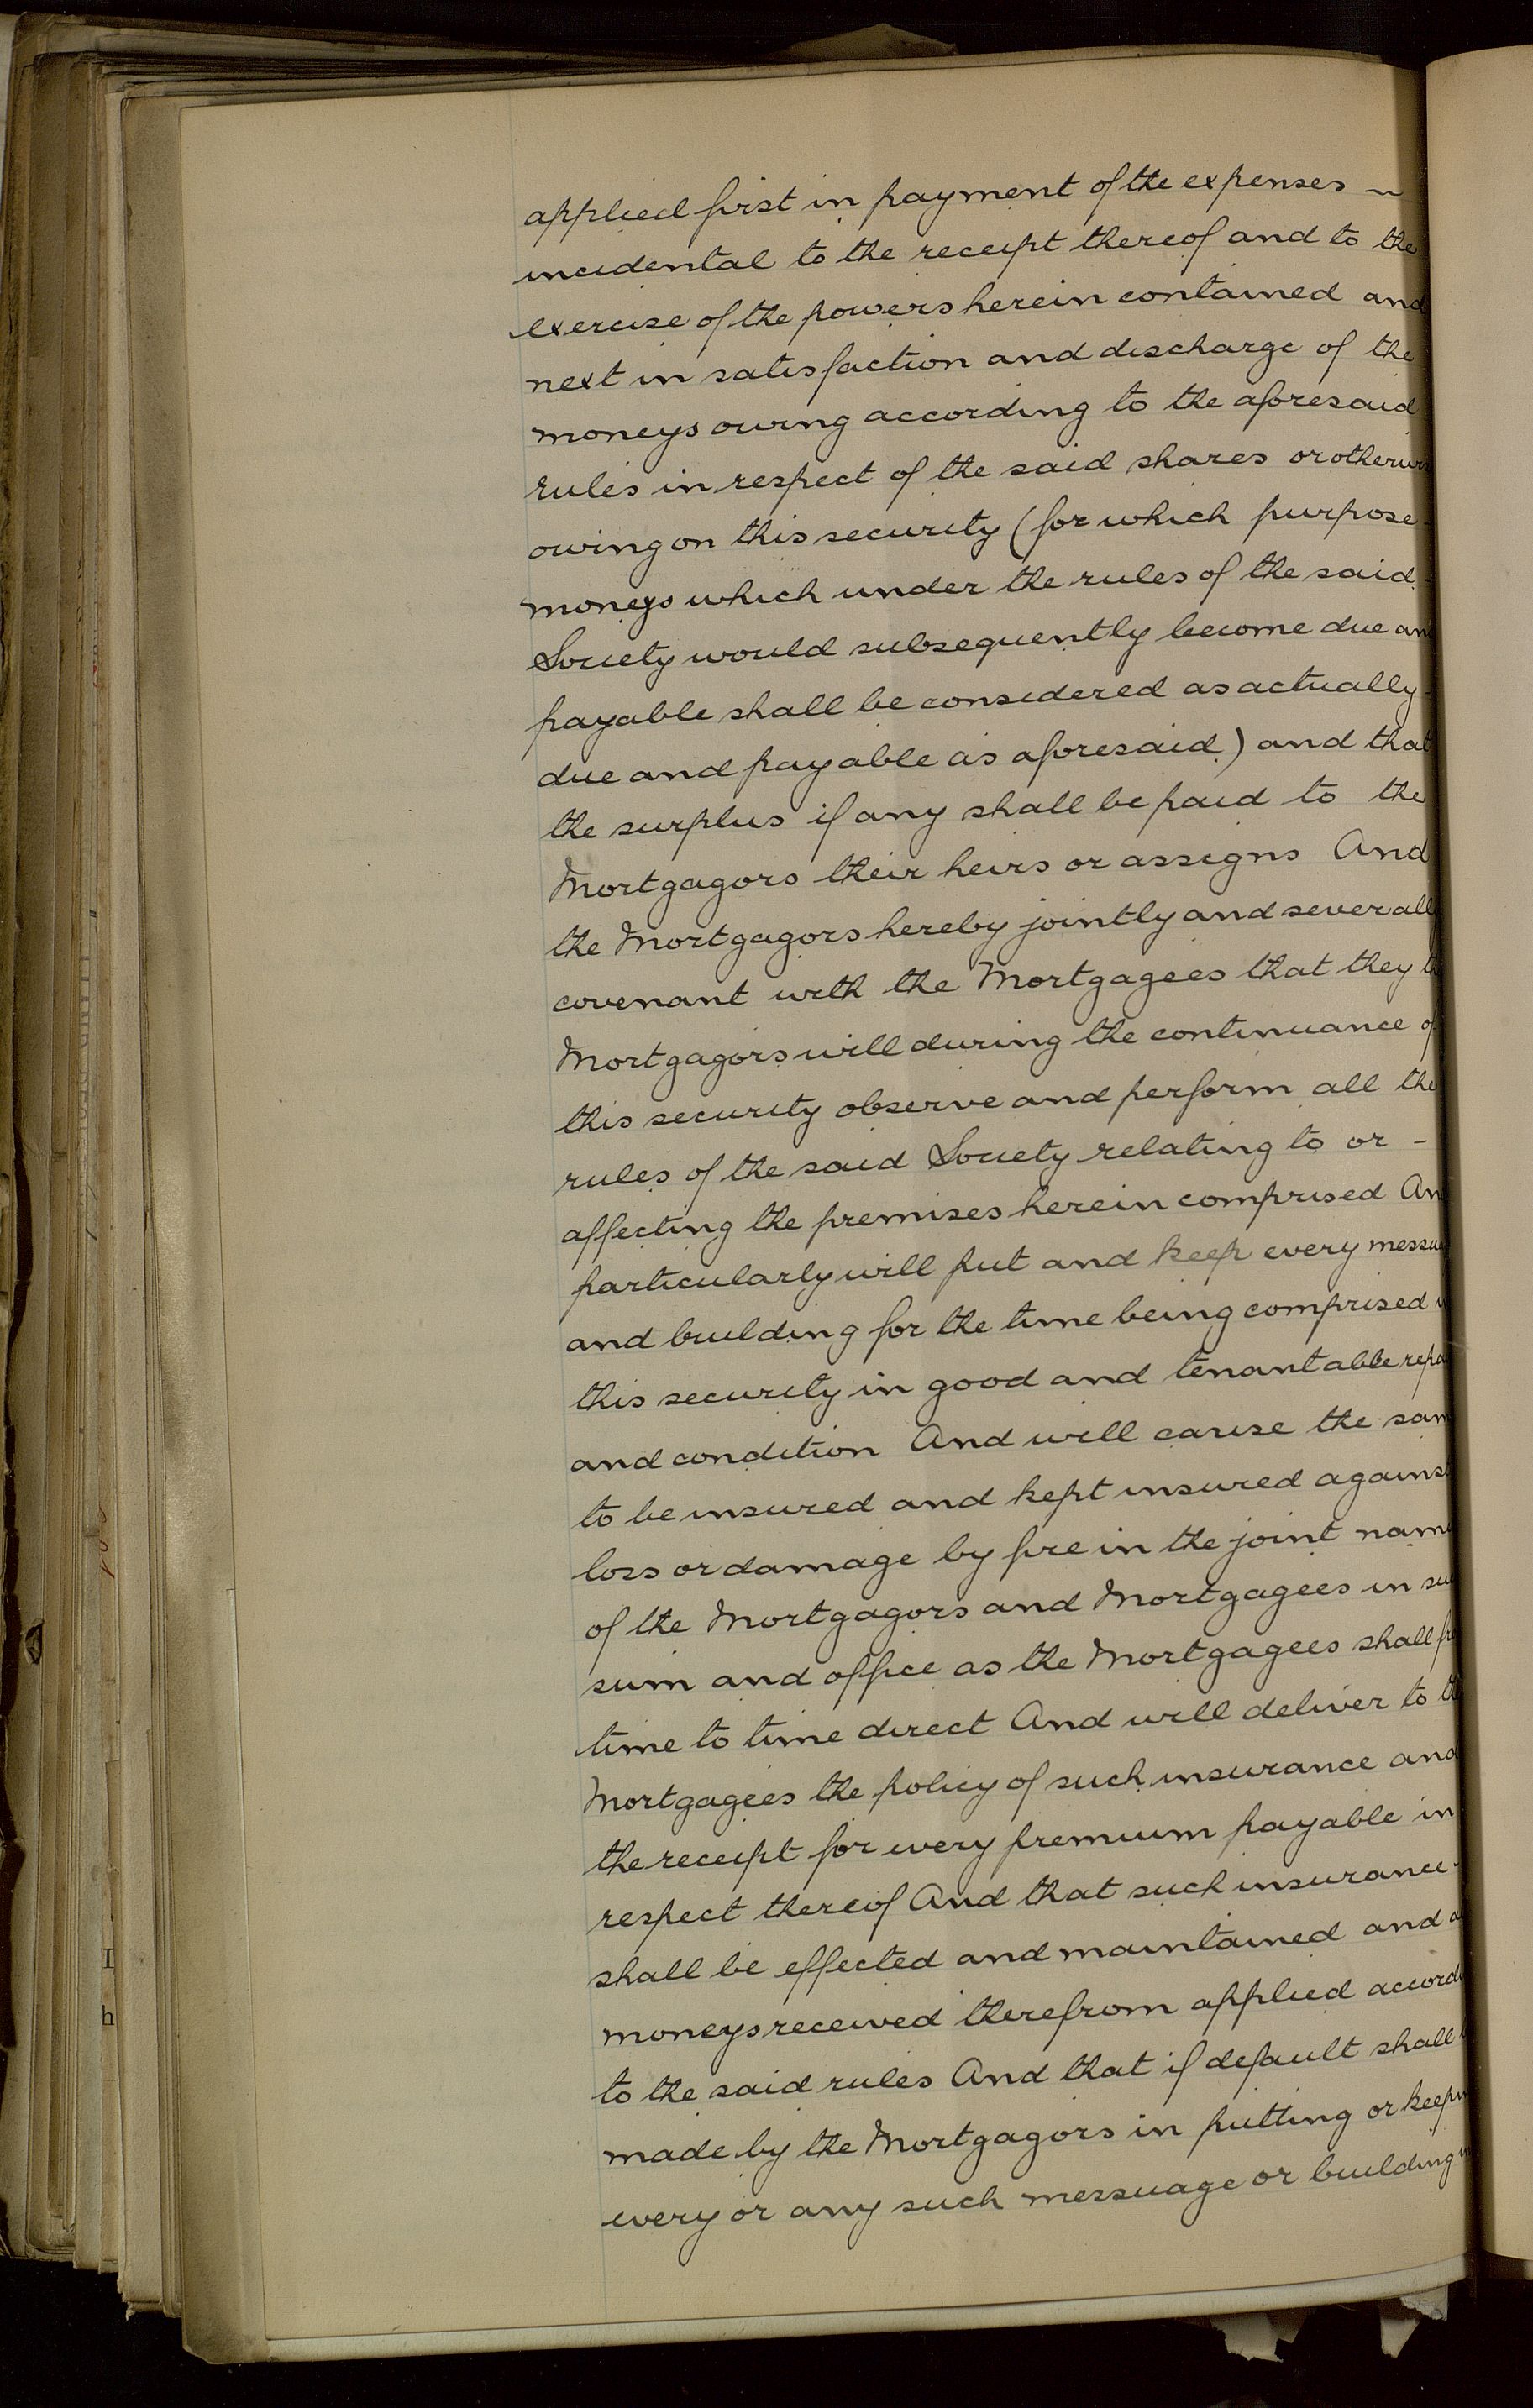 applied first in payment of the expenses ~
incidental to the receipt thereof and to the
exercise of the powers herein contained and
next in satisfaction and discharge of the
moneys owing according to the aforesaid
rules in respect of the said shares or otherwise
owing on this security (for which purpose -
moneys which under the rules of the said -
Society would subsequently become due and
payable shall be considered as actually -
due and payable as aforesaid) and that
the surplus if any shall be paid to the
Mortgagors their heirs or assigns And
the Mortgagors hereby jointly and severally
covenant with the Mortgagees that they the
Mortgagors will during the continuance of
this security observe and perform all the
rules of the said Society relating to or -
affecting the premises herein comprised And
particularly will put and keep every messuage
and building for the time being comprised in
this security in good and tenantable repair
and condition And will cause the same
to be insured and kept insured against
loss or damage by fire in the joint names
of the Mortgagors and Mortgagees in such
sum and office as the Mortgagees shall from
time to time direct And will deliver to the
Mortgagees the policy of such insurance and
the receipt for every premium payable in
respect thereof And that such insurance -
shall be effected and maintained and all
moneys received therefrom applied according
to the said rules And that if default shall be
made by the Mortgagors in putting or keeping
every or any such messuage or building in
I
h